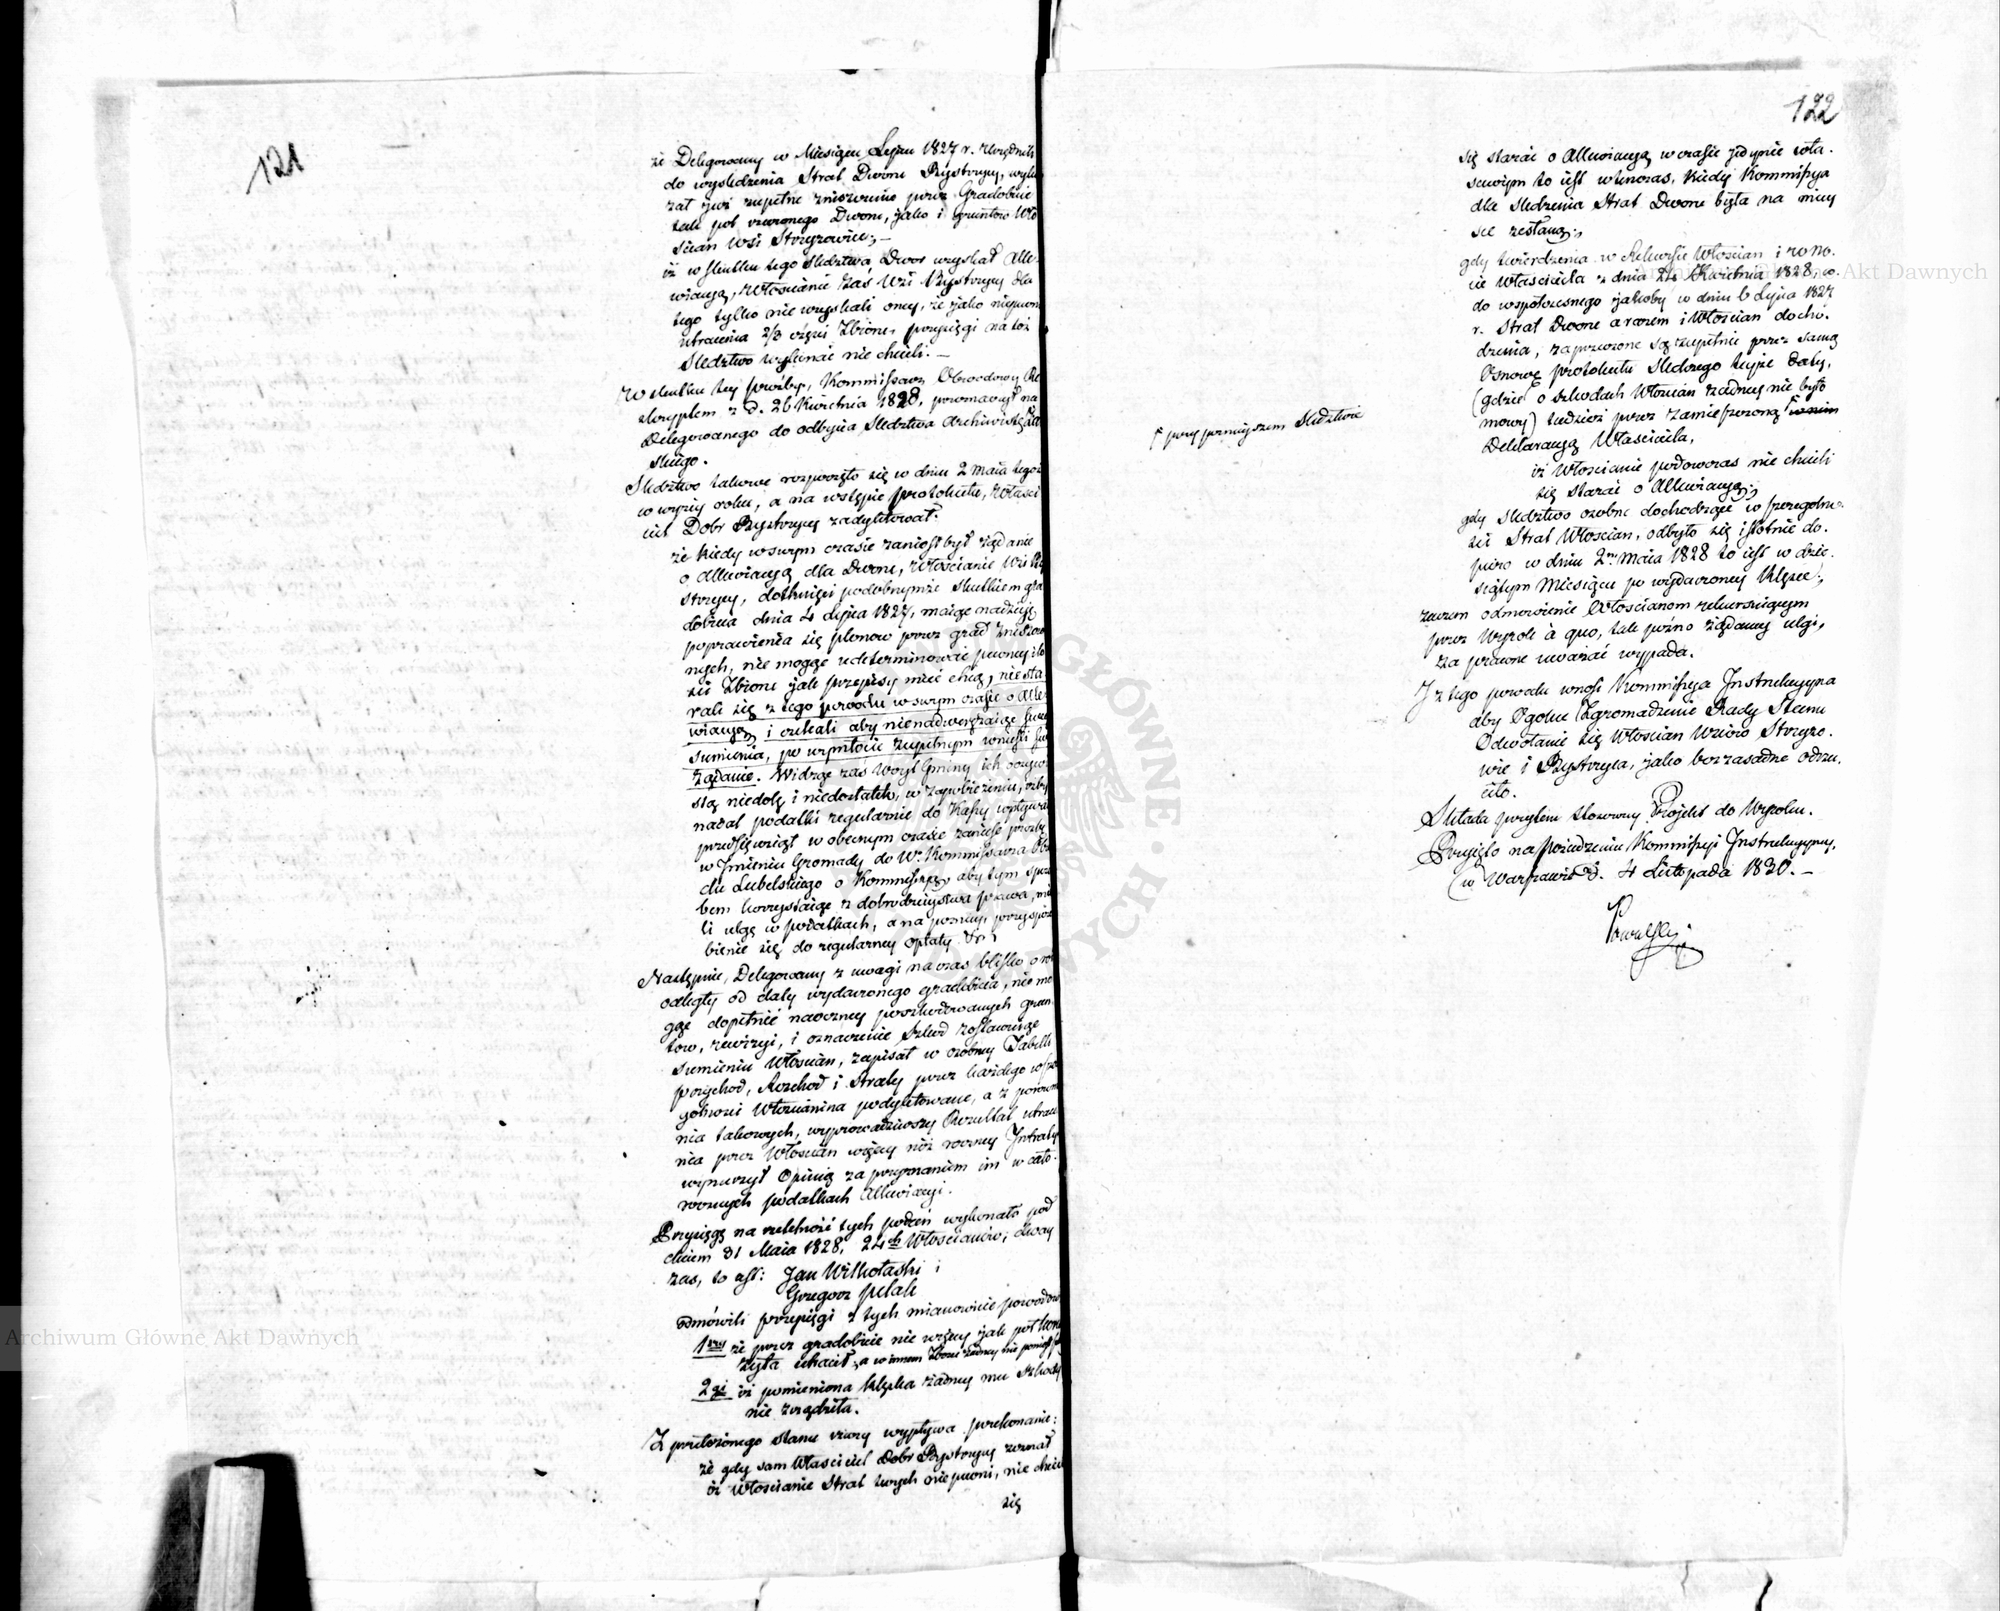 121
że Delegowany w Miesiącu Lipcu 1827 r. Urzędnik
do wyśledzenia Strat Dworu Bystrzycy, wyka
zał już zupełne zniszczenie przez Gradobicie
tak pól rzeczonego Dworu, jako i gruntów Wło
ścian Wsi Strzyżowice;—
iż w skutku tego śledztwa Dwór uzyskał Alle
wiacyą, Włościanie zaś Wsi Bystrzycy dla
tego tylko nie uzyskali oney, że jako niepewni
utracenia 2/3 części Zbioru, przysięgi na toż
Śledztwo wykonać nie chcieli.—
W skutku tey prośby, Kommissarz Obwodowy Re
skryptem z D. 26 Kwietnia 1828, przeznaczył na
Delegowanego do odbycia Śledztwa Archiwistę
Śledztwo takowe rozpoczęto się w dniu 2 Maia tegoż
w wyżej roku, a na wstępie protokułu, Właści
ciel Dóbr Bystrzycy zadyktował:
że kiedy w swym czasie zaniósł był żądanie
o Allewiacyą dla Dworu, Włościanie Wsi By
strzycy, dotknięci podobnymże skutkiem gra
dobicia dnia 4 Lipca 1827, maiąc nadzieję
poprawienia się plonów przez grad zniszczo
nych, nie mogąc udeterminować pewney ilo
ści Zbioru jak przepisy mieć chcą, nie sta
rali się z tego powodu w swym czasie o Alle
wiacyą i czekali aby nienadwerężaiąc swego
sumienia, po wymłocie zupełnym wnieśli swe
żądanie. Widząc zaś Woyt Gminy ich oczywi
stą niedolę i niedostatek, w zapobieżeniu, żeby
nadal podatki regularnie do Kassy wpływały
przedsięwziął w obecnym czasie zanieść prośbę
w Jmieniu Gromady do W. Kommissarza Ob
du Lubelskiego o Kommissyą, aby tym spos
bem korzystaiąc z dobrodzieystwa prawa, mie
li ulgę w podatkach, a na pomoc, przysposo
bienie się do regularney opłaty &c.
Następnie, Delegowany z uwagi na czas blisko o rok
odległy od daty wydarzonego gradobicia, nie mo
gąc dopełnić naoczney poszkodowanych grun
tów, rewizyi, i oznaczenie szkód zostawuiąc
sumieniu Włościan, zapisał w osobney Tabelli
przychod, Rozchod i Straty przez każdego w szcze
gólności Włościanina podyktowane, a z porówna
nia takowych, wyprowadziwszy Rezultat utrace
nia przez Włościan więcey niż roczney Jntraty
wynurzył Opinią za przyznaniem im w cało
rocznych podatkach Allewiacyi.
Przysięgę na rzetelność tych podań wykonało pod
dniem 31 Maia 1828, 24ch Włościanów; dwóch
zaś, to jest: Jan Wilkołaski i
Grzegorz
odmówili przysięgi z tych mianowicie powodów
1wszy że przez gradobicie nie więcey jak pół kor
żyta utracił, a w innem Zbożu żadney nie poniósł
2gi iż pomieniona klęska żadney mu szkody
nie zrządziła.
Z przełożonego stanu rzeczy wypływa przekonanie:
że gdy sam Właściciel Dóbr Bystrzycy zeznał
iż Włościanie Strat swych niepewni, nie chcieli
się
122
się starać o Allewiacyą w czasie jedynie wła-
ściwym to iest wtenczas, kiedy Kommissya
dla śledzenia Strat Dworu była na miey
sce zesłaną;
gdy twierdzenia w Rekursie Włościan i
cie Właściciela z dnia 24 Kwietnia 1828, co
do współczesnego jakoby w dniu 6 Lipca 1827
r. Strat Dworu a razem i Włościan docho-
dzenia, zaprzeczone są zupełnie przez samą
Osnowę protokułu śledczego teyże daty,
(gdzie o szkodach Włościan żadney nie było
mowy) tudzież przez zamieszczoną
Deklaracyą Właściciela,
iż Włościanie podówczas nie chcieli
się starać o Allewiacyą;
gdy śledztwo osobne dochodzące w szczególno-
ści Strat Włościan, odbyło się istotnie do-
piero w dniu 2m Maia 1828 to iest w dzie-
siątym Miesiącu po wydarzoney klęsce;
zaczem odmówienie Włościanom rekursuiącym
przez Wyrok à quo, tak późno żądaney ulgi,
za prawne uważać wypada.
Z tego powodu wnosi Kommissya Jnstrukcyyna
aby Ogólne Zgromadzenie Rady Stanu
Odwołanie się Włościan Wsiów Strzyżo-
wic i Bystrzyca, jako bezzasadne odrzu-
ciło.
Składa przytem stosowny Projekt do Wyroku.
Przyięto na posiedzeniu Kommissyi Jnstrukcyyney,
w Warszawie D. 4 Listopada 1830.—
przy poprzednim śledztwie